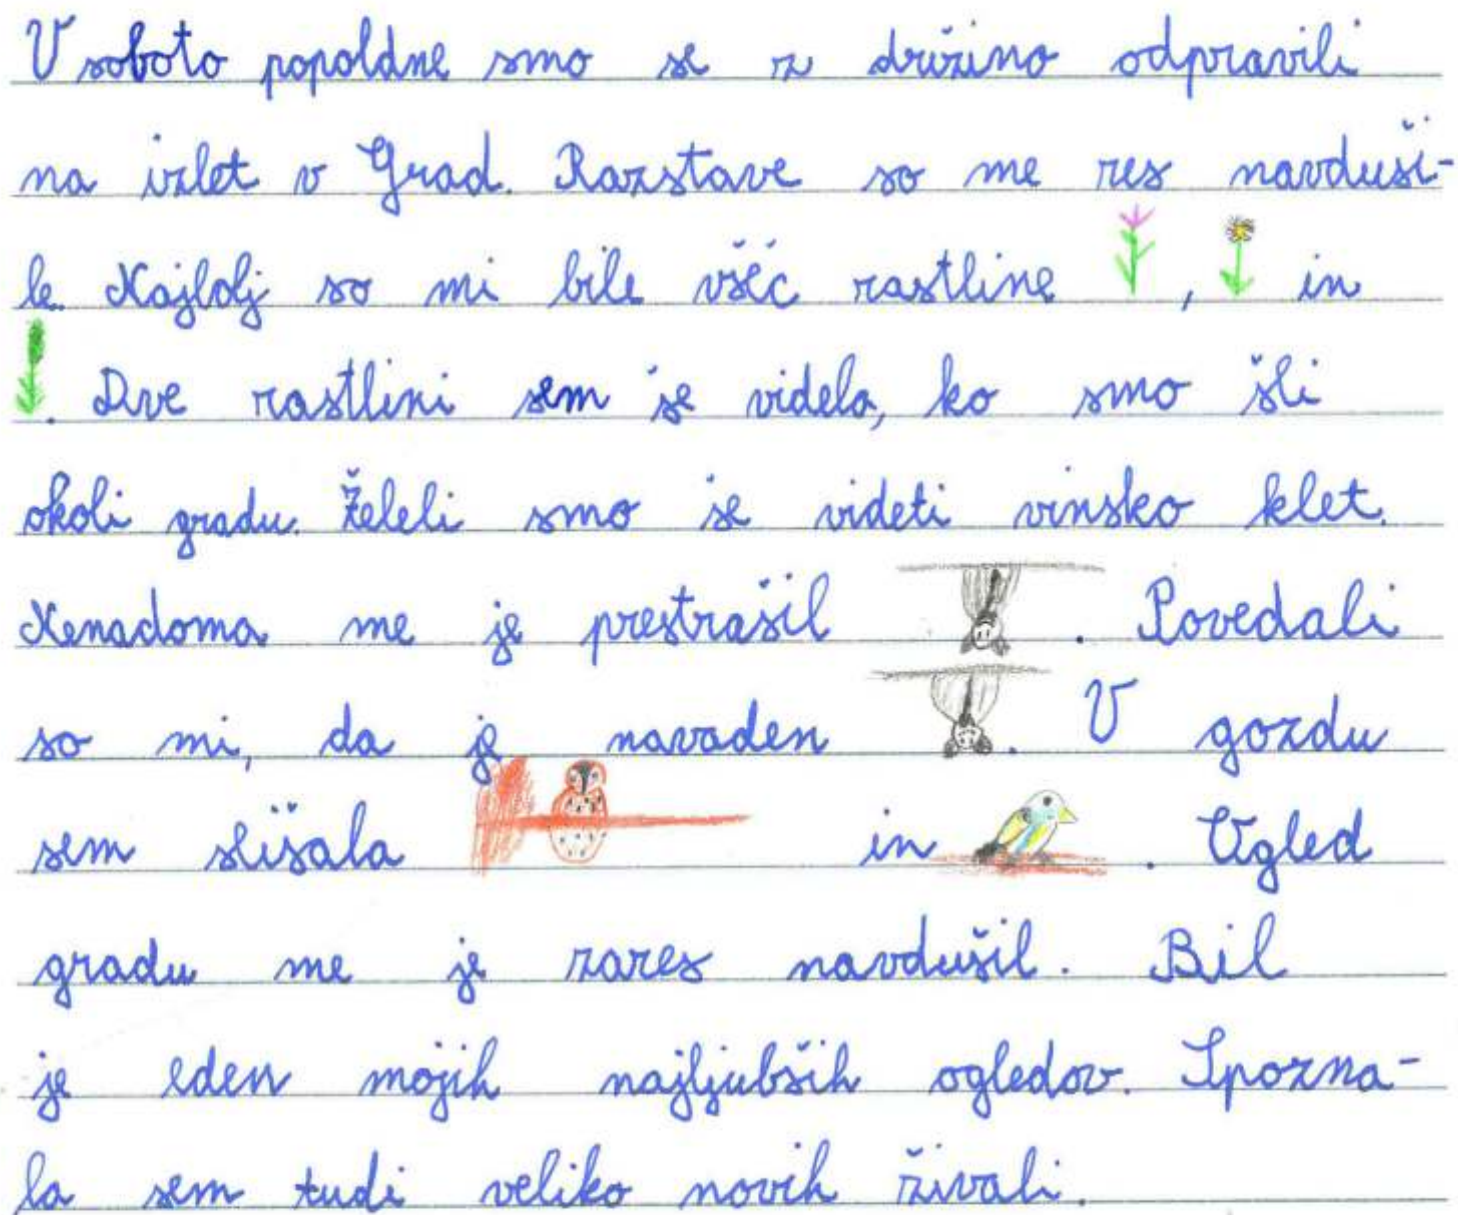 V soboto popoldne smo se z družino odpravili
na izlet v Grad. Razstave so me res navduši-
le. Najbolj so mi bile všeč rastline , in
. Dve rastlini sem še videla, ko smo šli
okoli gradu. Želeli smo še videti vinsko klet.
Nenadoma me je prestrašil . Povedali
so mi, da je navaden . V gozdu
sem slišala in . Ogled
gradu me je zares navdušil. Bil
je eden mojih najljubših ogledov. Spozna-
la sem tudi veliko novih živali.